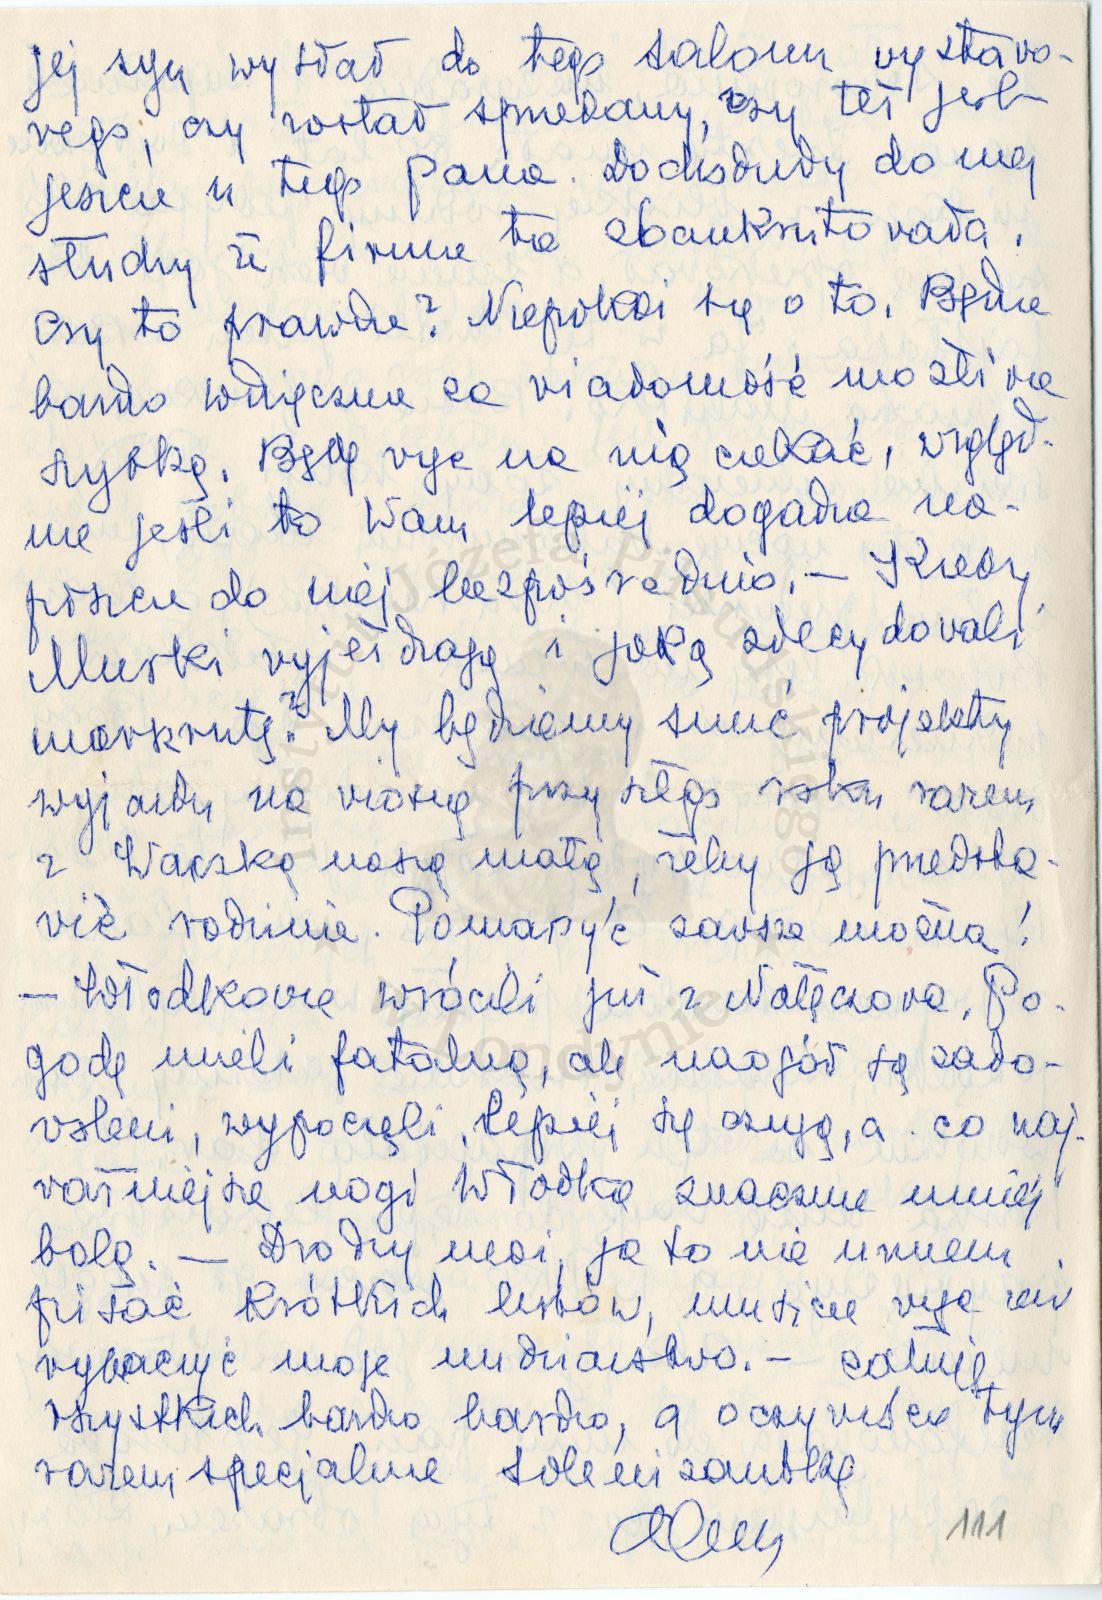 jej syn wysłał do tego salonu wystawo-
wego, czy został sprzedany, czy też jest
jeszcze u tego Pana. Dochodziły do niej
słuchy że firma ta zbankrutowała.
Czy to prawda? Niepokoi się o to. Będzie
bardzo wdzięczna za wiadomość możliwie
szybką. Będę więc na nią czekać, względ-
nie jeśli to Wam lepiej dogadza na-
piszcie do niej bezpośrednio. — Kiedy
Murki wyjeżdżają i jaką zdecydowali
marszrutę? My będziemy snuć projekty
wyjazdu na wiosnę przyszłego roku razem
z Waczką naszą małą, żeby ją przedsta-
wić rodzinie. Pomarzyć zawsze można!
— Włodkowie wrócili już z Nałęczowa. Po-
godę mieli fatalną, ale naogół są zado-
woleni, wypoczęli, lepiej się czują, a co naj-
ważniejsze nogi Włodka znacznie mniej
bolą. — Drodzy moi, ja to nie umiem
pisać krótkich listów, musicie więc mi
wybaczyć moje nudziarstwo. — Całuję
wszystkich bardzo bardzo, a oczywiście tym
razem specjalnie solenizantkę
111
Instytut Józefa Piłsudskiego
w Londynie